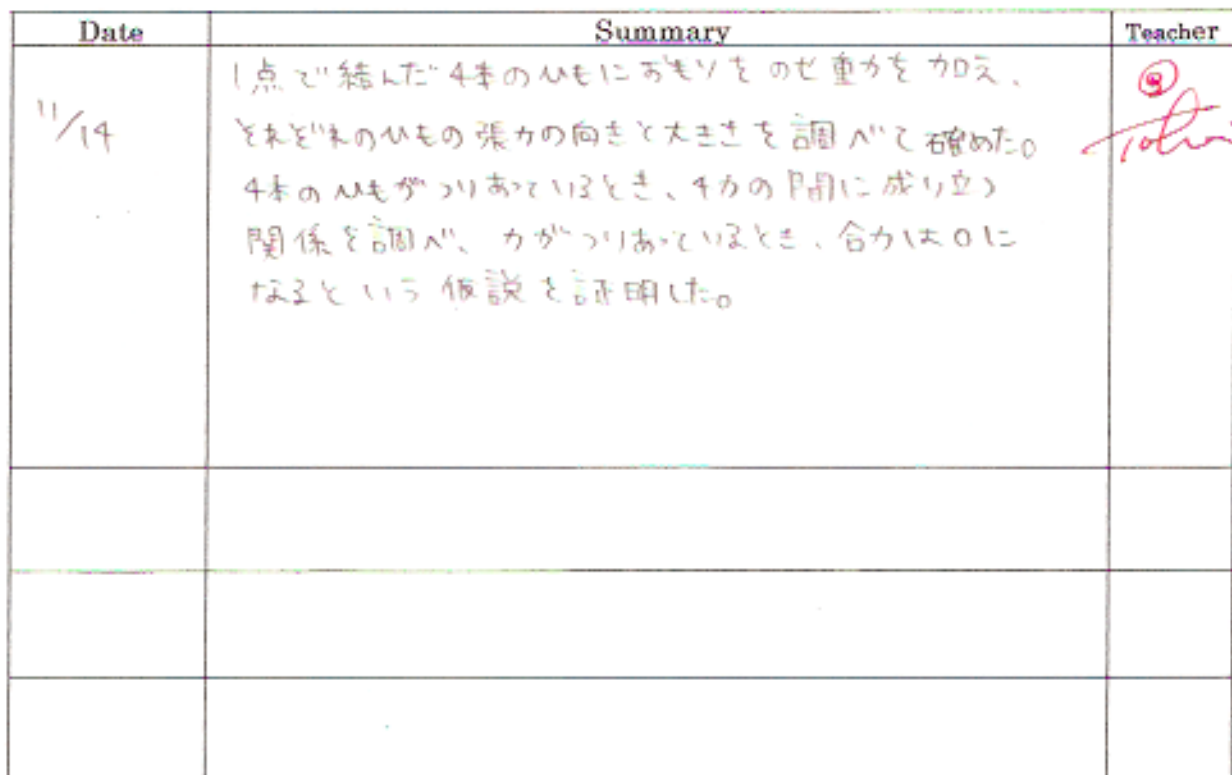 Date Summary Teacher
1点で結んだ4本のひもにおもりをのせ重力を加え、
11/14
それぞれのひもの張力の向きと大きさを調べて確めた。
4本のひもがつりあっているとき、4力の間に成り立つ
関係を調べ、力がつりあっているとき、合力は0に
なるという仮説を証明した。